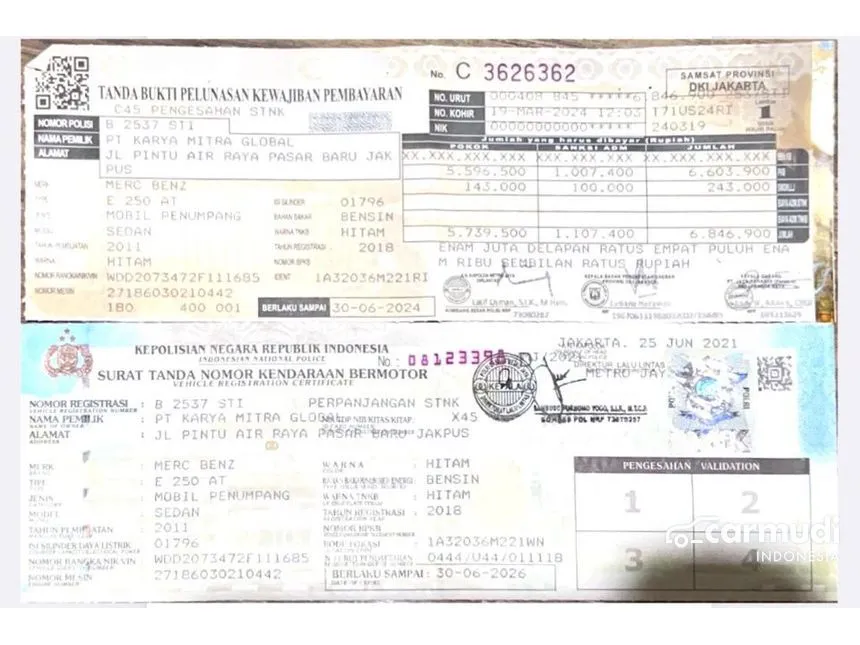 No. C 3626362
SAMSAT PROVINSI
DKI JAKARTA
TANDA BUKTI PELUNASAN KEWAJIBAN PEMBAYARAN
C45 PENGESAHAN STNK
NO. URUT 000408 845
NO. KOHIR 19-MAR-2024 12:03 171US24RI
NIK 0000000000000000 240319
NOMOR POLISI B 2537 STI
NAMA PEMILIK PT KARYA MITRA GLOBAL
ALAMAT JL PINTU AIR RAYA PASAR BARU JAK
PUS
Jumlah yang harus dibayar (Rupiah)
POKOK SANKSI ADM JUMLAH
XX.XXX.XXX.XXX XX.XXX.XXX.XXX XX.XXX.XXX.XXX
5.596.500 1.007.400 6.603.900
143.000 100.000 243.000
5.739.500 1.107.400 6.846.900 JUMLAH
MERK MERC BENZ
E 250 AT ISI SILINDER 01796
MOBIL PENUMPANG BAHAN BAKAR BENSIN
MODEL SEDAN WARNA TNKB HITAM
TAHUN PEMBUATAN 2011 TAHUN REGISTRASI 2018
WARNA HITAM NOMOR BPKB
NOMOR RANGKA/NIK/VIN WDD2073472F111685 IDENT 1A32036M221RI
NOMOR MESIN 27186030210442
180 400 001 BERLAKU SAMPAI 30-06-2024
ENAM JUTA DELAPAN RATUS EMPAT PULUH ENA
M RIBU SEMBILAN RATUS RUPIAH
KEPOLISIAN NEGARA REPUBLIK INDONESIA
INDONESIAN NATIONAL POLICE
No.: 08123398
SURAT TANDA NOMOR KENDARAAN BERMOTOR
VEHICLE REGISTRATION CERTIFICATE
JAKARTA. 25 JUN 2021
DIREKTUR LALU LINTAS
METRO JAYA
NOMOR REGISTRASI : B 2537 STI PERPANJANGAN STNK
VEHICLE REGISTRATION NUMBER
NAMA PEMILIK : PT KARYA MITRA GLOBAL X45
NAME OF OWNER
ALAMAT : JL PINTU AIR RAYA PASAR BARU JAKPUS
ADDRESS
MERK : MERC BENZ WARNA : HITAM
TYPE : E 250 AT : BENSIN
JENIS : MOBIL PENUMPANG WARNA TNKB : HITAM
MODEL : SEDAN TAHUN REGISTRASI : 2018
TAHUN PEMBUATAN : 2011 NOMOR BPKB
ISI SILINDER/DAYA LISTRIK : 01796 KODE LOKASI : 1A32036M221WN
NOMOR RANGKA/NIK/VIN : WDD2073472F111685 : 0444/U44/011118
NOMOR MESIN : 27186030210442 BERLAKU SAMPAI : 30-06-2026
PENGESAHAN VALIDATION
1 2
3 4
carmudi
INDONESIA